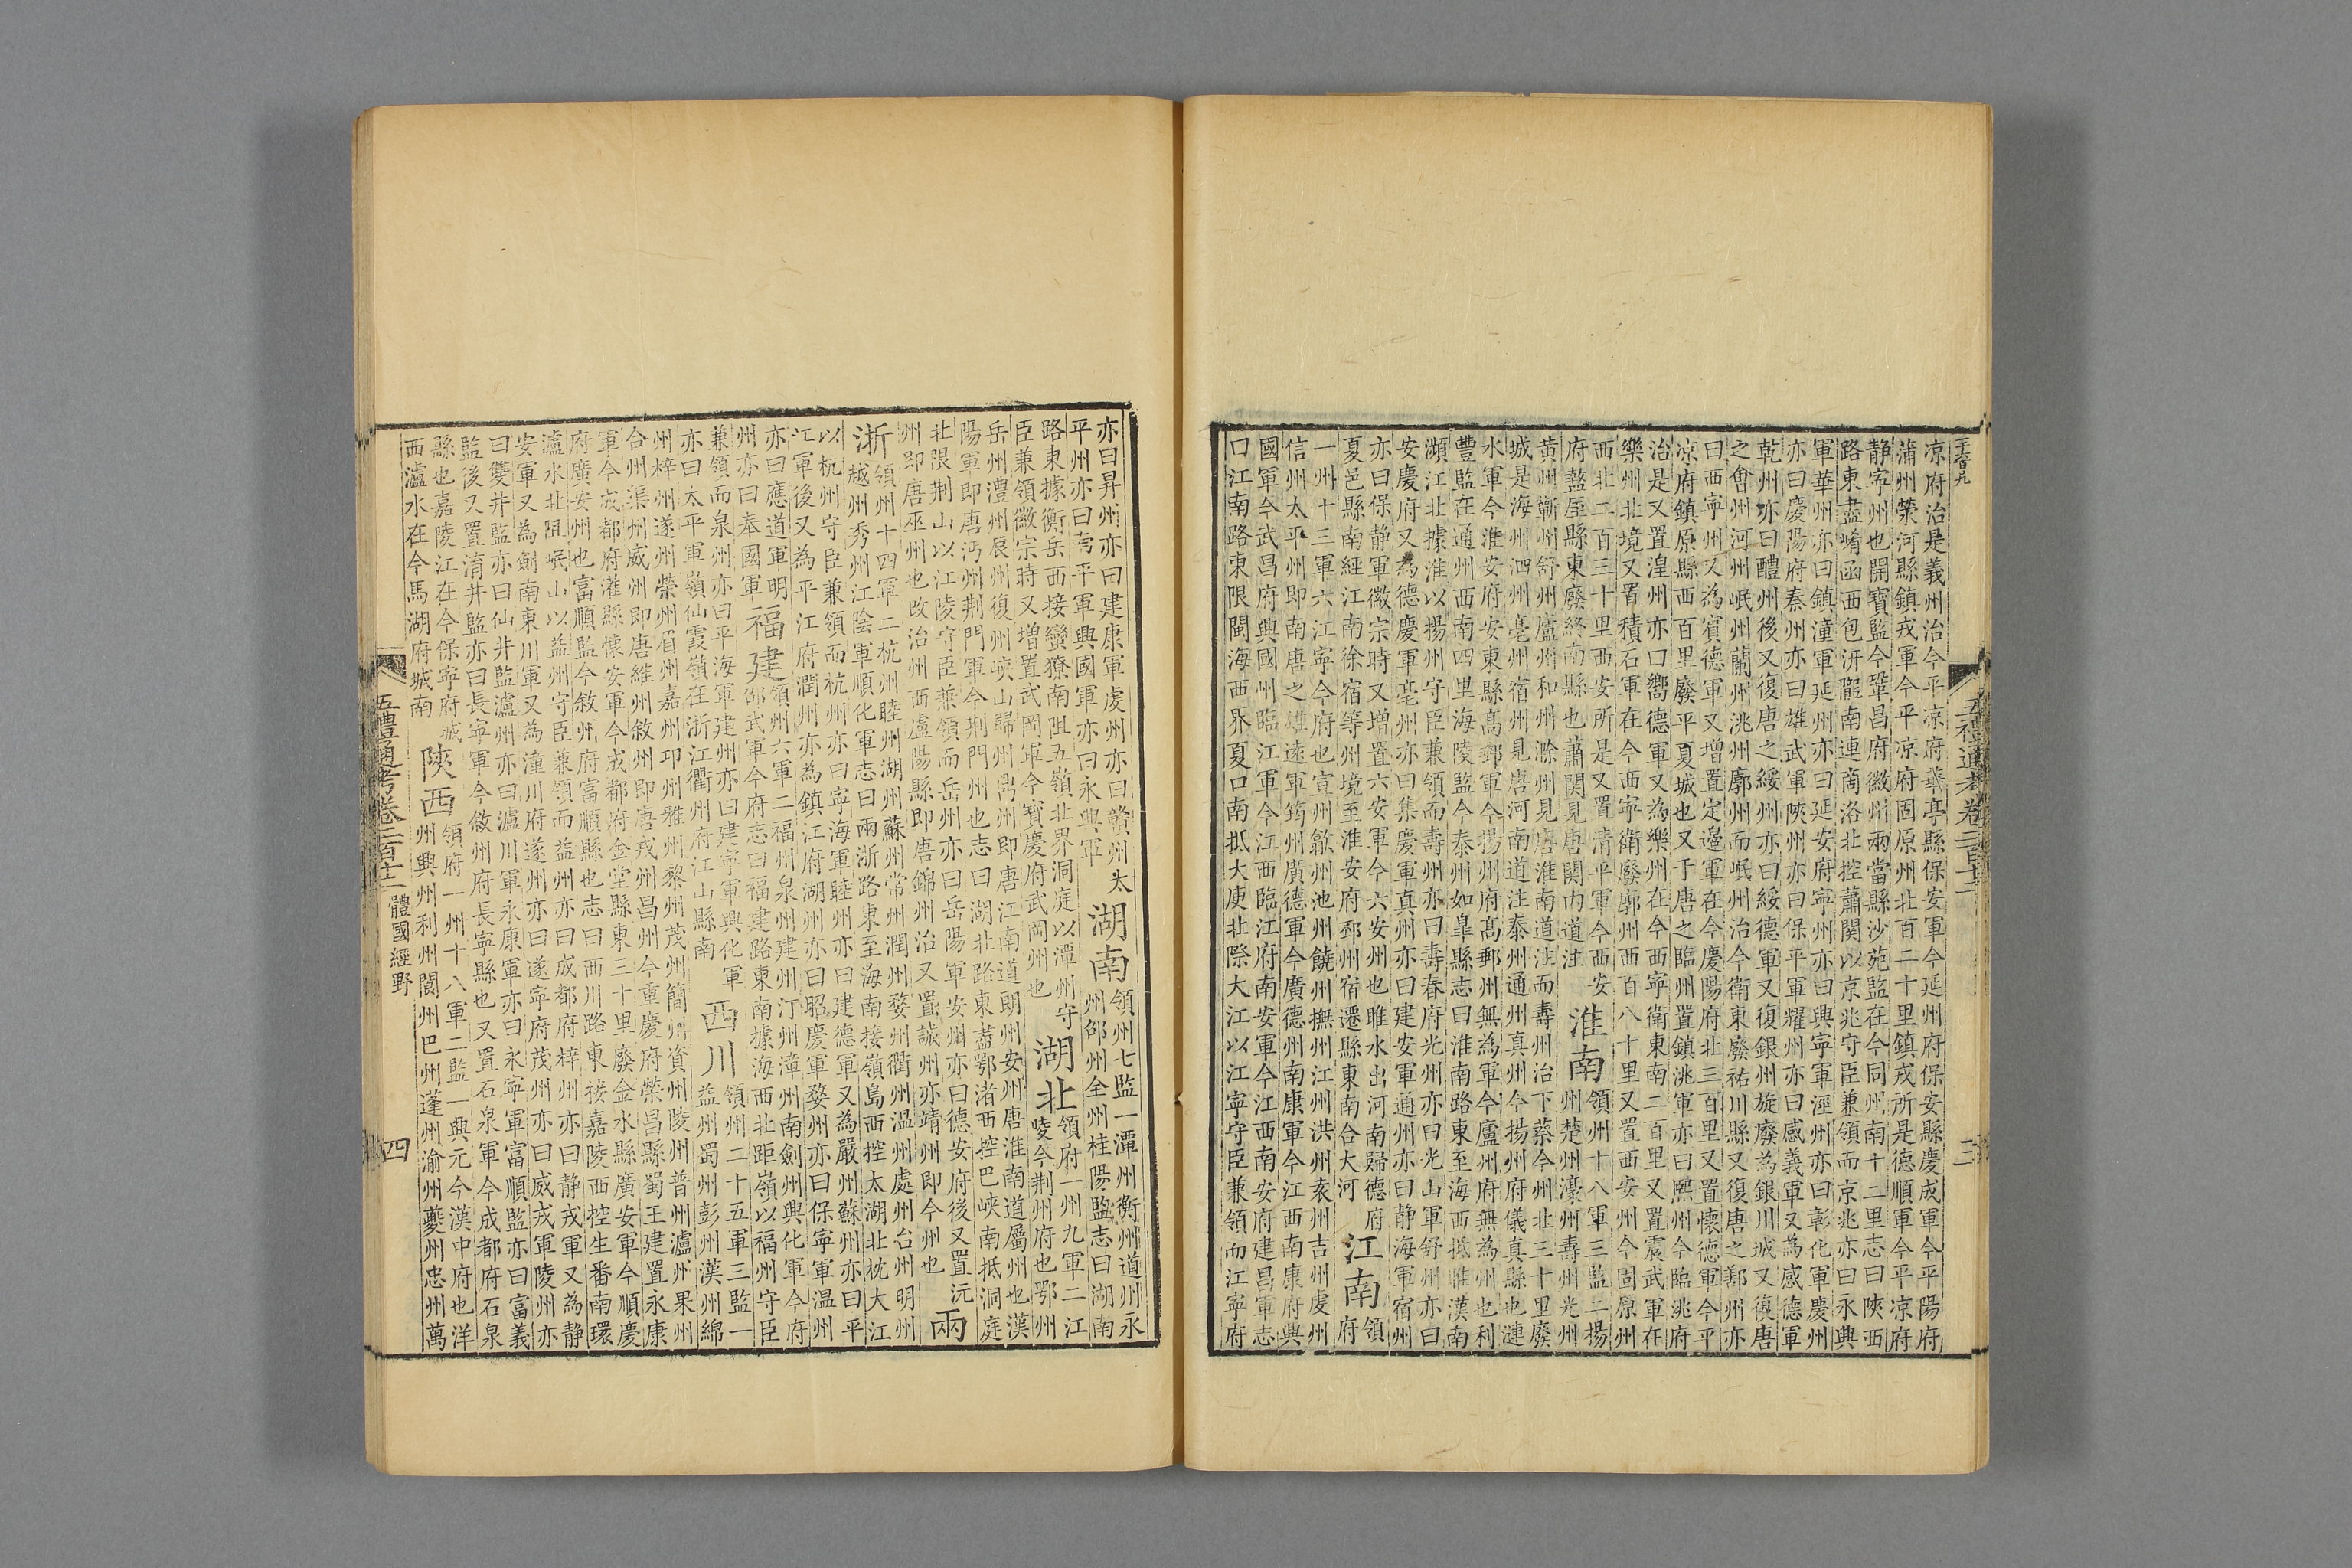 主會九
五禮通考卷二百十二
三
凉府治是義州治今平凉府華亭縣保安軍今延州府保安縣慶成軍今平陽府
蒲州榮河縣鎮戎軍今平凉府固原州北百二十里鎮戎所是德順軍今平凉府
静寧州也開寶監今鞏昌府徽州兩當縣沙苑監在今同州南十二里志曰陝西
路東盡崤函西包汧隴南連商洛北控蕭關以京兆守臣兼領而京兆亦曰永興
軍華州亦曰鎮潼軍延州亦曰延安府寧州亦曰興寧軍涇州亦曰彰化軍慶州
亦曰慶陽府秦州亦曰雄武軍陝州亦曰保平軍耀州亦曰感義軍又為感德軍
乾州亦曰醴州後又復唐之綏州亦曰綏德軍又復銀州旋廢為銀川城又復唐
之會州河州岷州蘭州洮州廓州而岷州治今衛東廢祐川縣又復唐之鄯州亦
曰西寧州又為賓德軍又增置定邊軍在今慶陽府北三百里又置懷德軍今平
凉府鎮原縣西百里廢平夏城也又于唐之臨州置鎮洮軍亦曰熙州今臨洮府
治是又置湟州亦口嚮德軍又為樂州在今西寧衛東南二百里又置震武軍在
樂州北境又置積石軍在今西寧衛廢廓州西百八十里又置西安州今固原州
西北二百三十里西安所是又置清平軍今西安
府盩厔縣東廢終南縣也蕭関見唐関内道注
淮南
領州十八軍三監二揚
州楚州濠州壽州光州
黄州蘄州舒州廬州和州滁州見唐淮南道注而壽州治下蔡今州北三十里廢
城是海州泗州亳州宿州見唐河南道注泰州通州真州今揚州府儀真縣也連
水軍今淮安府安東縣高郵軍今揚州府高郵州無為軍今廬州府無為州也利
豐監在通州西南四里海陵監今泰州如皋縣志曰淮南路東至海西抵濉漢南
瀕江北據淮以揚州守臣兼領而壽州亦曰壽春府光州亦曰光山軍舒州亦曰
安慶府又為德慶軍亳州亦曰集慶軍真州亦曰建安軍通州亦曰静海軍宿州
亦曰保静軍徽宗時又增置六安軍今六安州也睢水出河南歸德府
夏邑縣南經江南徐宿等州境至淮安府邳州宿遷縣東南合大河
江南
領
府
一州十三軍六江寧今府也宣州歙州池州饒州撫州江州洪州袁州吉州虔州
信州太平州即南唐之雄遠軍筠州廣德軍今廣德州南康軍今江西南康府興
國軍今武昌府興國州臨江軍今江西臨江府南安軍今江西南安府建昌軍志
口江南路東限閩海西界夏口南抵大庾北際大江以江寧守臣兼領而江寧府
亦曰昇州亦曰建康軍虔州亦曰贛州太
平州亦曰南平軍興國軍亦曰永興軍
湖南
領州七監一潭州衡州道州永
州邵州全州桂陽監志曰湖南
路東據衡岳西接蠻獠南阻五嶺北界洞庭以潭州守
臣兼領徽宗時又增置武岡軍今寶慶府武岡州也
湖北
領府一州九軍二江
陵今荆州府也鄂州
岳州澧州辰州復州峽山歸州鼎州即唐江南道朗州安州唐淮南道屬州也漢
陽軍即唐沔州荆門軍今荆門州也志曰湖北路東盡鄂渚西控巴峽南抵洞庭
北限荆山以江陵守臣兼領而岳州亦曰岳陽軍安州亦曰德安府後又置沅
州即唐巫州也改治州西盧陽縣即唐錦州治又置誠州亦靖州即今州也
兩
浙
領州十四軍二杭州睦州湖州蘇州常州潤州婺州衢州温州處州台州明州
越州秀州江陰軍順化軍志曰兩浙路東至海南接嶺島西控太湖北枕大江
以杭州守臣兼領而杭州亦曰寧海軍睦州亦曰建德軍又為嚴州蘇州亦曰平
江軍後又為平江府潤州亦為鎮江府湖州亦曰昭慶軍婺州亦曰保寧軍温州
亦曰應道軍明
州亦曰奉國軍
福建
領州六軍二福州泉州建州汀州漳州南劍州興化軍今府
邵武軍今府志曰福建路東南據海西北距嶺以福州守臣
兼領而泉州亦曰平海軍建州亦曰建寧軍興化軍
亦曰太平軍嶺仙霞嶺在浙江衢州府江山縣南
西川
領州二十五軍三監一
益州蜀州彭州漢州綿
州梓州遂州榮州眉州嘉州邛州雅州黎州茂州簡州資州陵州普州瀘州果州
合州渠州威州即唐維州敘州即唐戎州昌州今重慶府榮昌縣蜀王建置永康
軍今成都府灌縣懷安軍今成都府金堂縣東三十里廢金水縣廣安軍今順慶
府廣安州也富順監今敘州府富順縣也志曰西川路東接嘉陵西控生番南環
瀘水北阻岷山以益州守臣兼領而益州亦曰成都府梓州亦曰静戎軍又為静
安軍又為劍南東川軍又為潼川府遂州亦曰遂寧府茂州亦曰威戎軍陵州亦
曰雙井監亦曰仙井監瀘州亦曰瀘川軍永康軍亦曰永寧軍富順監亦曰富義
監後又置淯井監亦曰長寧軍今敘州府長寧縣也又置石泉軍今成都府石泉
縣也嘉陵江在今保寧府城
西瀘水在今馬湖府城南
陝西
領府一州十八軍二監一興元今漢中府也洋
州興州利州閬州巴州蓬州渝州夔州忠州萬
五禮通考卷二百十二 體國經野
四